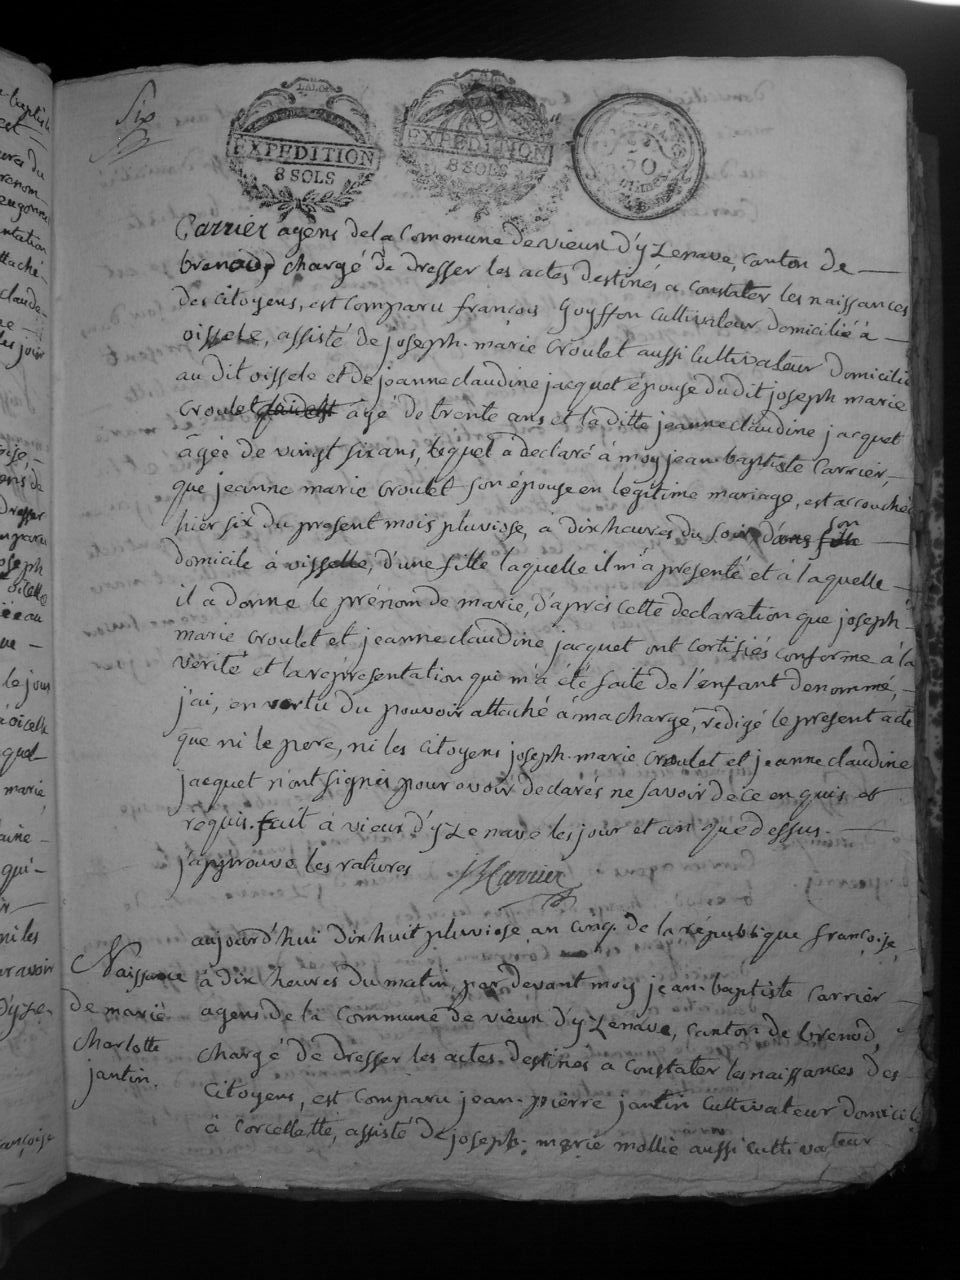 Six
LA LOI
EXPEDITION
8 SOLS
EXPEDITION
8 SOLS
Carrier agens de la Commune de vieux d'yzenave, canton de
brenod chargé de dresser les actes destinés a constater les naissances
des citoyens, est comparu françois Goyffon cultivateur domicilié à
oissele, assisté de joseph-marie croulet aussi cultivateur domicilié
au dit oissele et de jeanne claudine jacquet épouse du dit joseph marie
croulet âgé de trente ans et la ditte jeanne claudine jacquet
âgée de vingt six ans, lequel a déclaré à moy jean-baptiste Carrier,
que jeanne marie croulet son épouse en legitime mariage, est accouchée
hier six du present mois pluviose, à dix heures du soir dans son
domicile à oisselle, d'une fille laquelle il m'a presenté et à laquelle
il a donné le prénom de marie, d'après cette declaration que joseph-
marie croulet et jeanne claudine jacquet ont certifiés conforme à la
vérité et la représentation qui m'a été faite de l'enfant denommé,
j'ai, en vertu du pouvoir attaché à ma charge, rédigé le present acte
que ni le pere, ni les citoyens joseph-marie croulet et jeanne claudine
jacquet n'ont signés pour avoir declarés ne savoir de ce enquis et
requis. fait à vieux d'yzenave les jour et an que dessus.
j'approuve les ratures JB Carrier
aujourd'hui dix huit pluviose an cinq de la république françoise
Naissance
de marie
Charlotte
jantin.
à dix heures du matin, par devant moy jean-baptiste Carrier
agens de la Commune de vieux d'yzenave, canton de brenod,
chargé de dresser les actes destinés a constater les naissances des
Citoyens, est comparu jean-pierre jantin cultivateur domicilié
à corcellette, assisté de joseph-marie mollie aussi cultivateur